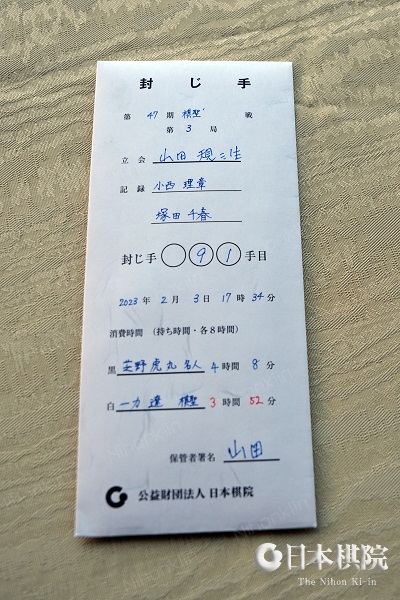 封じ手
第 47 期 棋聖 戦
第 3 局
立会 山田 規三生
記録 小西 理章
塚田 千春
封じ手 ○ 9 1 手目
2023 年 2 月 3 日 17 時 34 分
消費時間 (持ち時間・各8時間)
黒 芝野 虎丸 名人 4 時間 8 分
白 一力 遼 棋聖 3 時間 52 分
保管者署名 山田
公益財団法人 日本棋院
日本棋院
The Nihon Ki-in